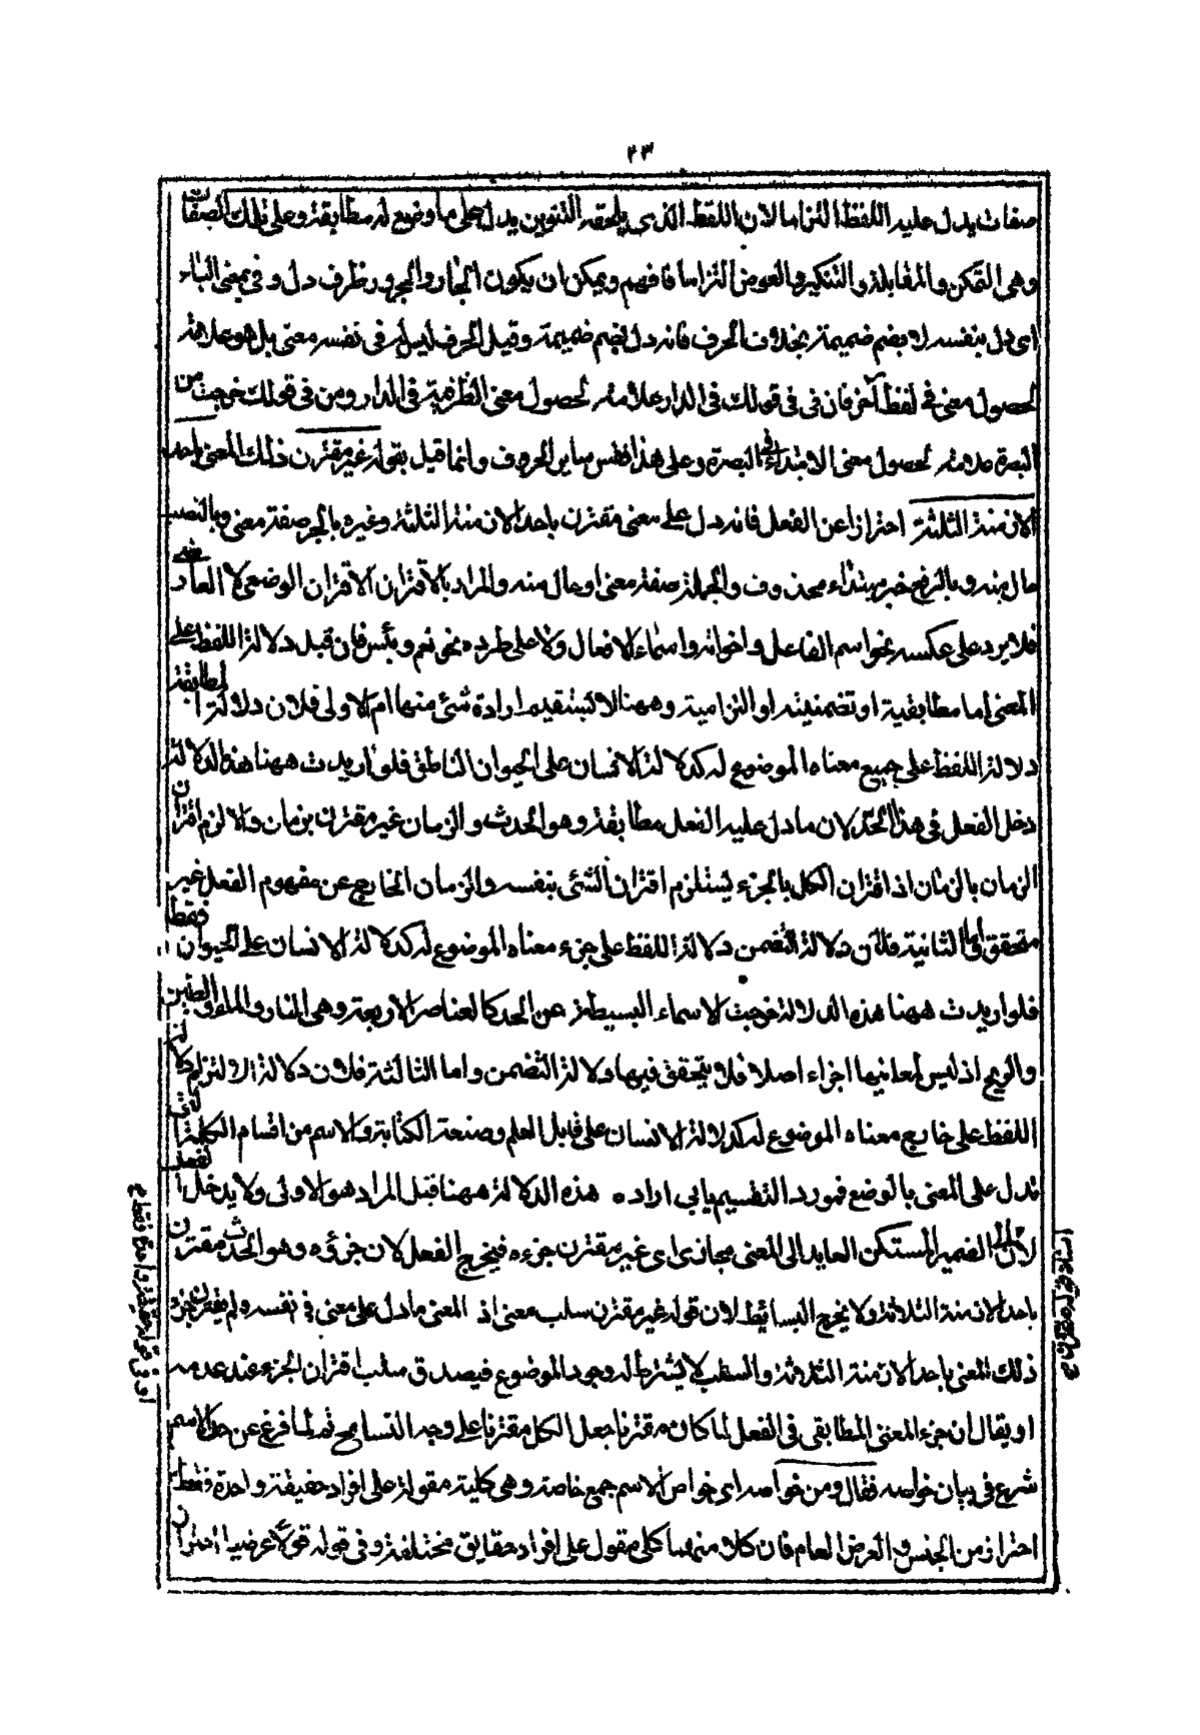 ٢٣
صفات يدل عليه اللفظ التزاما لان اللفظ الذى يلحقه التنوين يدل على ما وضع له مطابقة وعلى تلك الصفات
وهى التمكن والمقابلة والتنكير والعوض التزاما فافهم ويمكن ان يكون الجار والمجرور ظرف دل و فى بمعنى الباء
اى دل بنفسه لا بضم ضميمة بخلاف الحرف فانه دل بضم ضميمة وقيل الحرف ليس له فى نفسه معنى بل هو علامة
لحصول معنى فى لفظ آخر فان فى فى قولك فى الدار علامة لحصول معنى الظرفية فى الدار ومن فى قولك خرجت من
البصرة علامة لحصول معنى الابتداء فى البصرة وعلى هذا فقس ساير الحروف وانما قيل بقوله غير مقترن ذلك المعنى باحد
الازمنة الثلثة احترازا عن الفعل فانه دل على معنى مقترن باحد الازمنة الثلثة وغيره بالجر صفة معنى وبالنصب
حال منه وبالرفع خبر مبتداء محذوف والجملة صفة معنى او حال منه والمراد بالاقتران الاقتران الوضعى لا العادى
فلا يرد على عكسه نحو اسم الفاعل واخواته واسماء الافعال ولا على طرده نحو نعم وبئس فان قيل دلالة اللفظ على
المعنى اما مطابقية او تضمنية او التزامية وههنا لا تستقيم ارادة شئ منها ام الاولى فلان دلالة المطابقة
دلالة اللفظ على جميع معناه الموضوع له كدلالة الانسان على الحيوان الناطق فلو اريدت ههنا هذه الدلالة
دخل الفعل فى هذا الحد لان ما دل عليه الفعل مطابقة وهو الحدث والزمان غير مقترن بزمان والا لزم اقتران
الزمان بالزمان اذ اقتران الكل بالجزء يستلزم اقتران الشئ بنفسه والزمان الخارج عن مفهوم الفعل غير
متحقق واما الثانية فلان دلالة التضمن دلالة اللفظ على جزء معناه الموضوع له كدلالة الانسان على الحيوان فقط
فلو اريدت ههنا هذه الدلالة خرجت الاسماء البسيطة عن الحد كالعناصر الاربعة وهى النار والماء والطين
والريح اذ ليس لمعانيها اجزاء اصلا فلا يتحقق فيها دلالة التضمن واما الثالثة فلان دلالة الالتزام دلالة
اللفظ على خارج معناه الموضوع له كدلالة الانسان على قابل العلم وصنعة الكتابة والاسم من اقسام الكلمة التى
تدل على المعنى بالوضع فمورد التقسيم يابى اراده هذه الدلالة ههنا قيل المراد هو الاولى ولا يدخل الفعل
لان الضمير المستكن العايد الى المعنى مجازى اى غير مقترن جزءه فيخرج الفعل لان جزؤه وهو الحدث مقترن
باحد الازمنة الثلاثة ولا يخرج البسائط لان قوله غير مقترن سلب معنى اذ المعنى ما دل على معنى فى نفسه ولم يقترن جزء
ذلك المعنى باحد الازمنة الثلاثة والسلب لا يشترط له وجود الموضوع فيصدق سلب اقتران الجزء عند عدمه
او يقال ان جزء المعنى المطابقى فى الفعل لما كان مقترنا جعل الكل مقترنا على وجه التسامح ثم لما فرغ عن حد الاسم
شرع فى بيان خواصه فقال ومن خواصه اى خواص الاسم جمع خاصة وهى كلية مقولة على افراد حقيقة واحدة فقط
احتراز من الجنس والعرض العام فان كلا منهما كلى مقول على افراد حقايق مختلفة وفى قوله قولا عرضيا احتراز